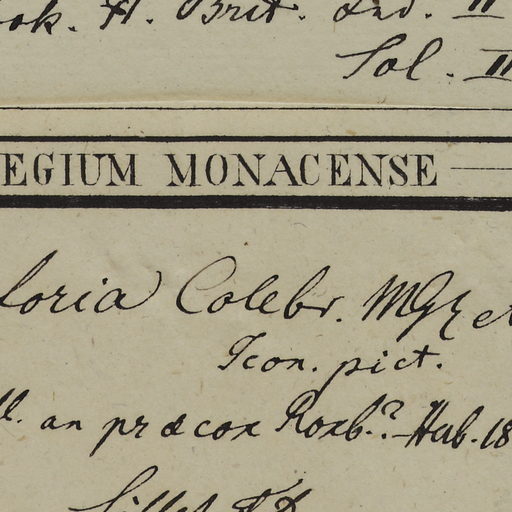 ok. Fl. Brit. Ind. II
Sol. II
EGIUM MONACENSE
loria Colebr. MGZ et
Icon. pict.
ll. an præcox Roxb.? Hab. 18